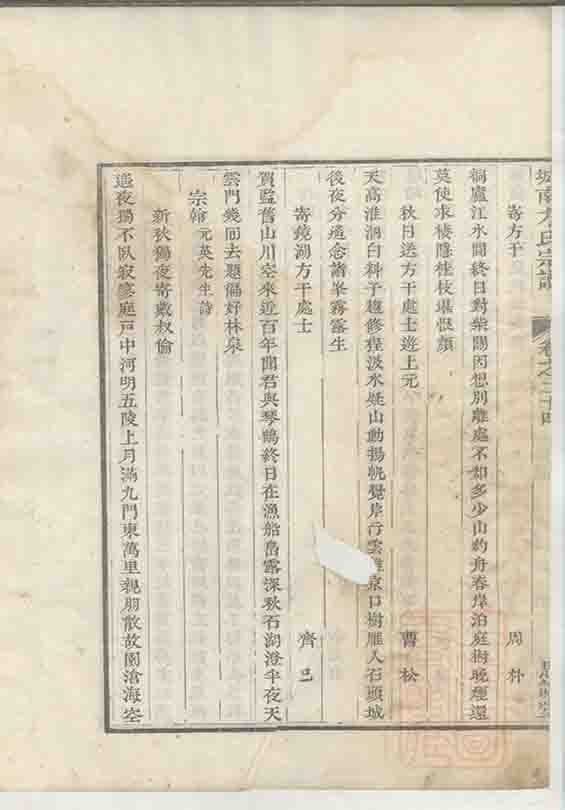 方氏宗譜
寄方干 周朴
桐廬江水閒終日對柴關因想別離處不知多少山釣舟春岸泊庭樹晚煙還
莫使求棲隱桂枝堪恨顏
秋日送方干處士遊上元 曹松
天高淮泗白料子趨修程汲水疑山動揚帆覺岸行雲離京口樹雁入石頭城
後夜分遙念諸峯霧露生
寄鏡湖方干處士 齊己
賀監舊山川空來近百年聞君與琴鶴終日在漁船島露深秋石湖澄半夜天
雲門幾回去題徧好林泉
宗翰元英先生詩
新秋獨夜寄戴叔倫
遙夜獨不臥寂寥庭戸中河明五陵上月滿九門東萬里親朋散故園滄海空